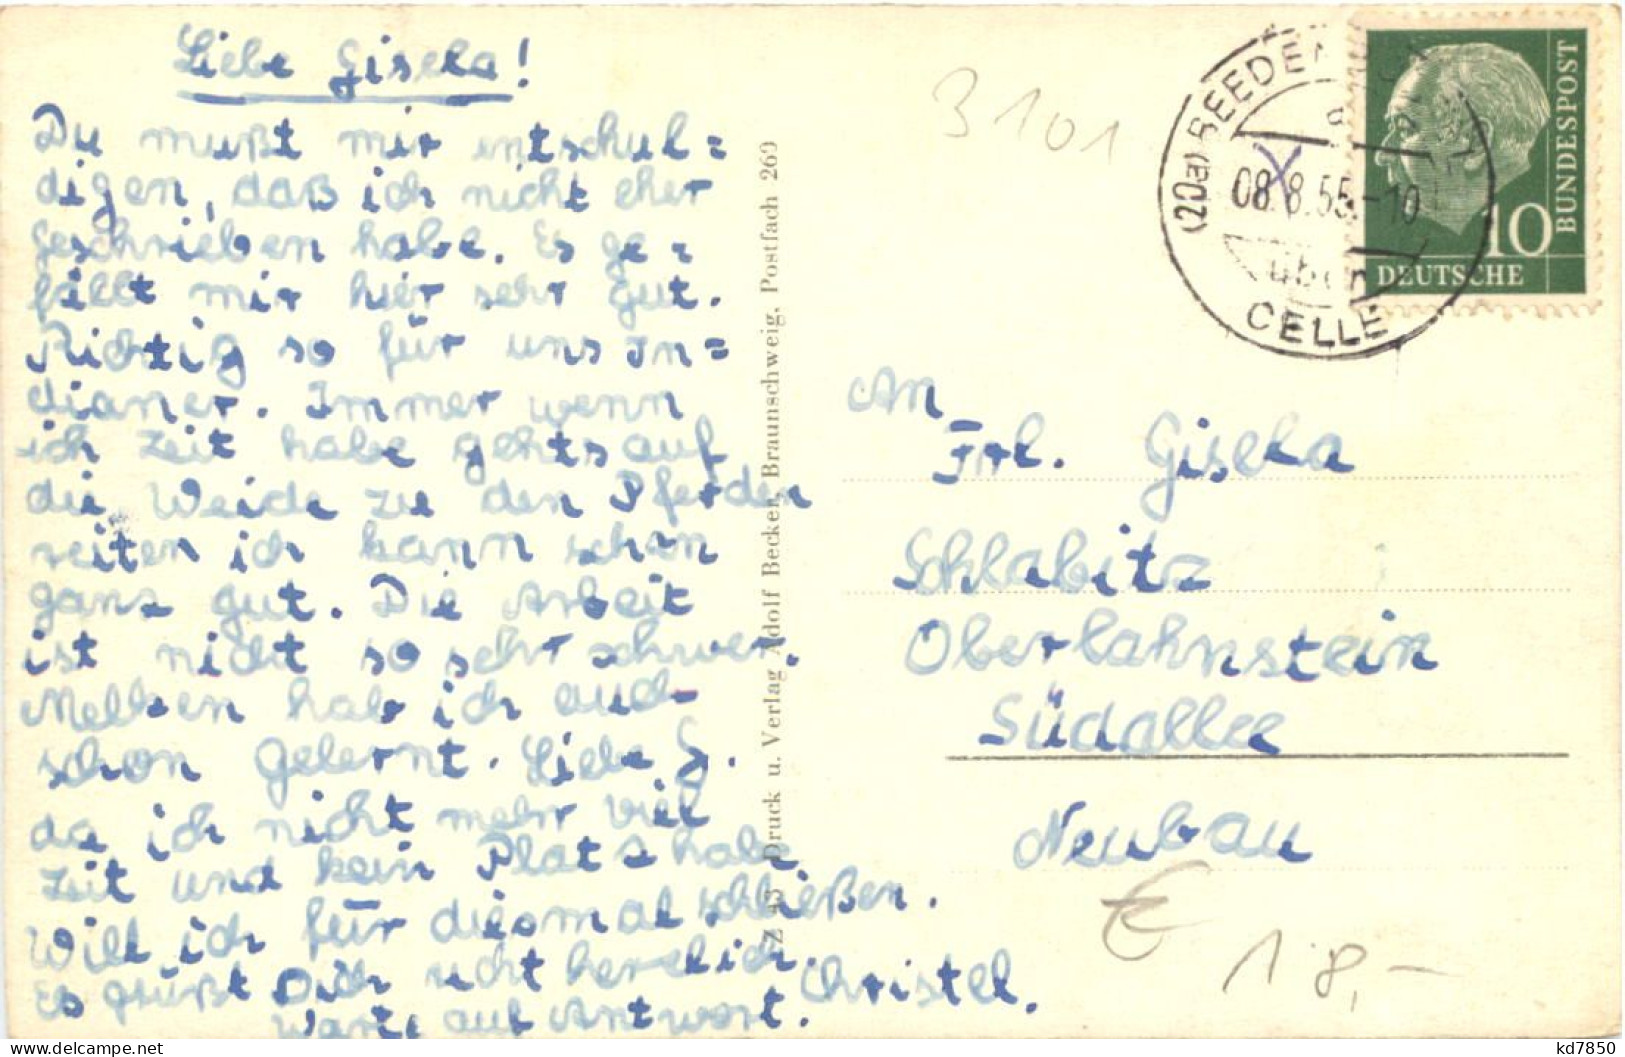 Liebe Gisela!
Du mußt mir entschul=
digen, daß ich nicht eher
geschrieben habe. Es ge=
fällt mir hier sehr gut.
Richtig so für uns In=
dianer. Immer wenn
ich Zeit habe gehts auf
die Weide zu den Pferden
reiten ich kann schon
ganz gut. Die Arbeit
ist nicht so sehr schwer.
Melken hab ich auch
schon gelernt. Liebe G.
da ich nicht mehr viel
Zeit und kein Platz habe
will ich für diesmal schließen.
Es grüßt Dich recht herzlich.
Christel.
Warte auf Antwort.
Z 43 Druck u. Verlag Adolf Becker, Braunschweig, Postfach 269
3101
(20a) BEEDENBOSTEL
08.8.55.-10
über
CELLE
BUNDESPOST
10
DEUTSCHE
An
Frl. Gisela
Schlabitz
Oberlahnstein
Südallee
Neubau
€ 18,-
kd7850